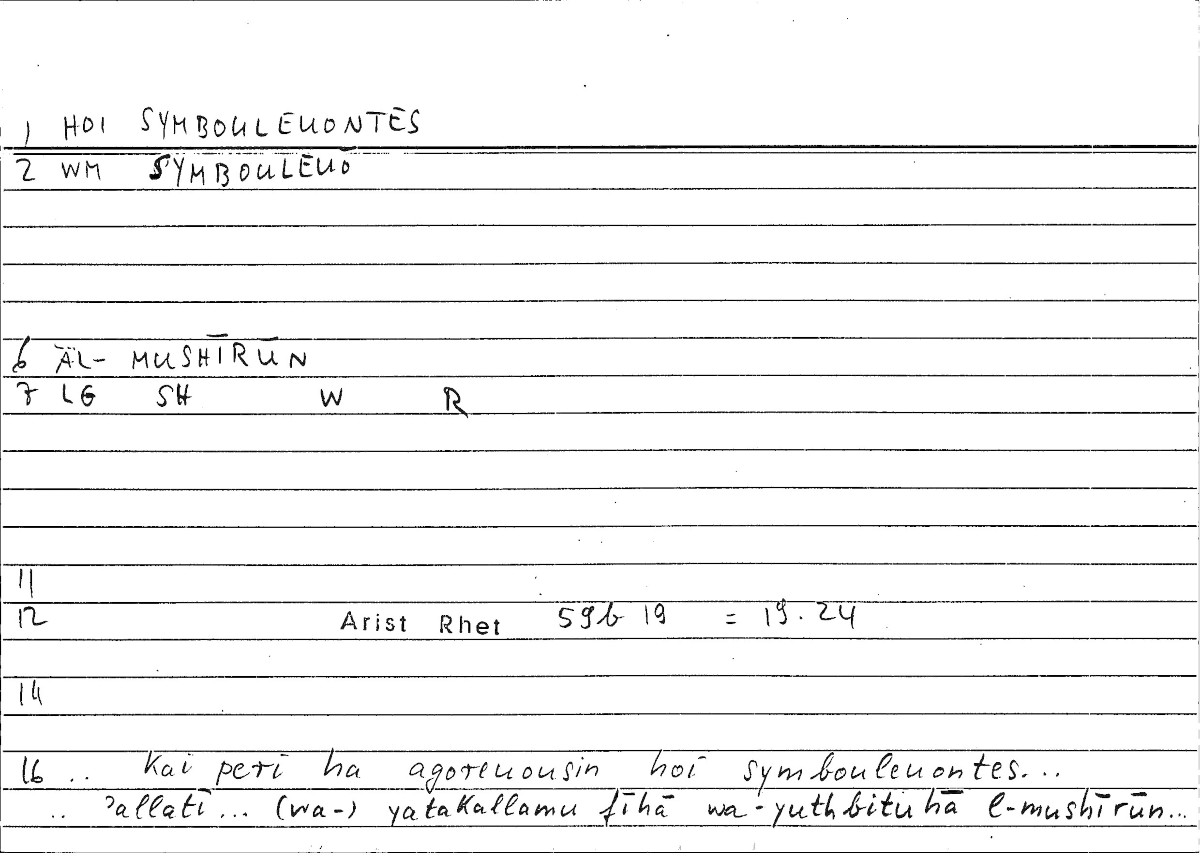 1 HOI SYMBOULEUONTES
2 WM SYMBOULEUŌ
6 ÄL- MUSHĪRŪN
7 LG SH W R
11
12 Arist Rhet 59b 19 = 19.24
14
16 .. kai peri ha agoreuousin hoi symbouleuontes...
.. ʾallatī... (wa-) yatakallamu fīhā wa-yuthbituhā l-mushīrūn...